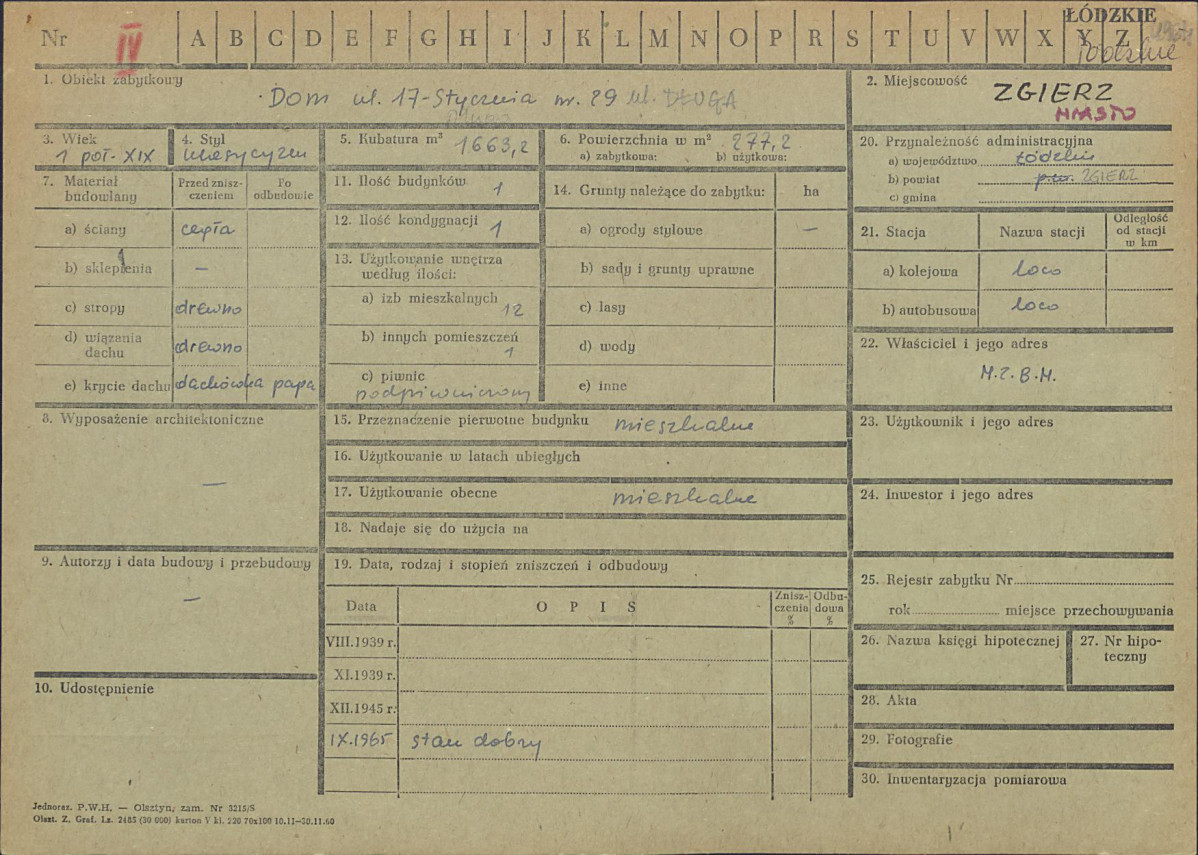 ŁÓDZKIE
Nr IV A B C D E F G H I J K L M N O P R S T U V W X Y Z
1. Obiekt zabytkowy
Dom ul. 17-Stycznia nr. 29 ul. DŁUGA
2. Miejscowość
ZGIERZ
MIASTO
3. Wiek
1 poł. XIX
4. Styl
klasycyzm
5. Kubatura m³ 1663,2
6. Powierzchnia w m² 277,2
a) zabytkowa: b) użytkowa:
7. Materiał budowlany
Przed zniszczeniem
Po odbudowie
a) ściany cegła
b) sklepienia –
c) stropy drewno
d) wiązania dachu drewno
e) krycie dachu dachówka papa
8. Wyposażenie architektoniczne
–
9. Autorzy i data budowy i przebudowy
–
10. Udostępnienie
11. Ilość budynków 1
12. Ilość kondygnacji 1
13. Użytkowanie wnętrza
według ilości:
a) izb mieszkalnych
12
b) innych pomieszczeń
1
c) piwnic
podpiwniczony
14. Grunty należące do zabytku: ha
a) ogrody stylowe –
b) sady i grunty uprawne
c) lasy
d) wody
e) inne
15. Przeznaczenie pierwotne budynku mieszkalne
16. Użytkowanie w latach ubiegłych
17. Użytkowanie obecne mieszkalne
18. Nadaje się do użycia na
19. Data, rodzaj i stopień zniszczeń i odbudowy
Data OPIS Zniszczenia % Odbudowa %
VIII.1939 r.
XI.1939 r.
XII.1945 r.
IX.1965 stan dobry
20. Przynależność administracyjna
a) województwo łódzkie
b) powiat ZGIERZ
c) gmina
21. Stacja Nazwa stacji Odległość od stacji w km
a) kolejowa loco
b) autobusowa loco
22. Właściciel i jego adres
M.Z.B.M.
23. Użytkownik i jego adres
24. Inwestor i jego adres
25. Rejestr zabytku Nr
rok miejsce przechowywania
26. Nazwa księgi hipotecznej
27. Nr hipoteczny
28. Akta
29. Fotografie
30. Inwentaryzacja pomiarowa
Jednoraz. P.W.H. — Olsztyn, zam. Nr 3215/S
Olszt. Z. Graf. Lz. 2485 (30 000) karton V kl. 220 70x100 10.11—30.11.60